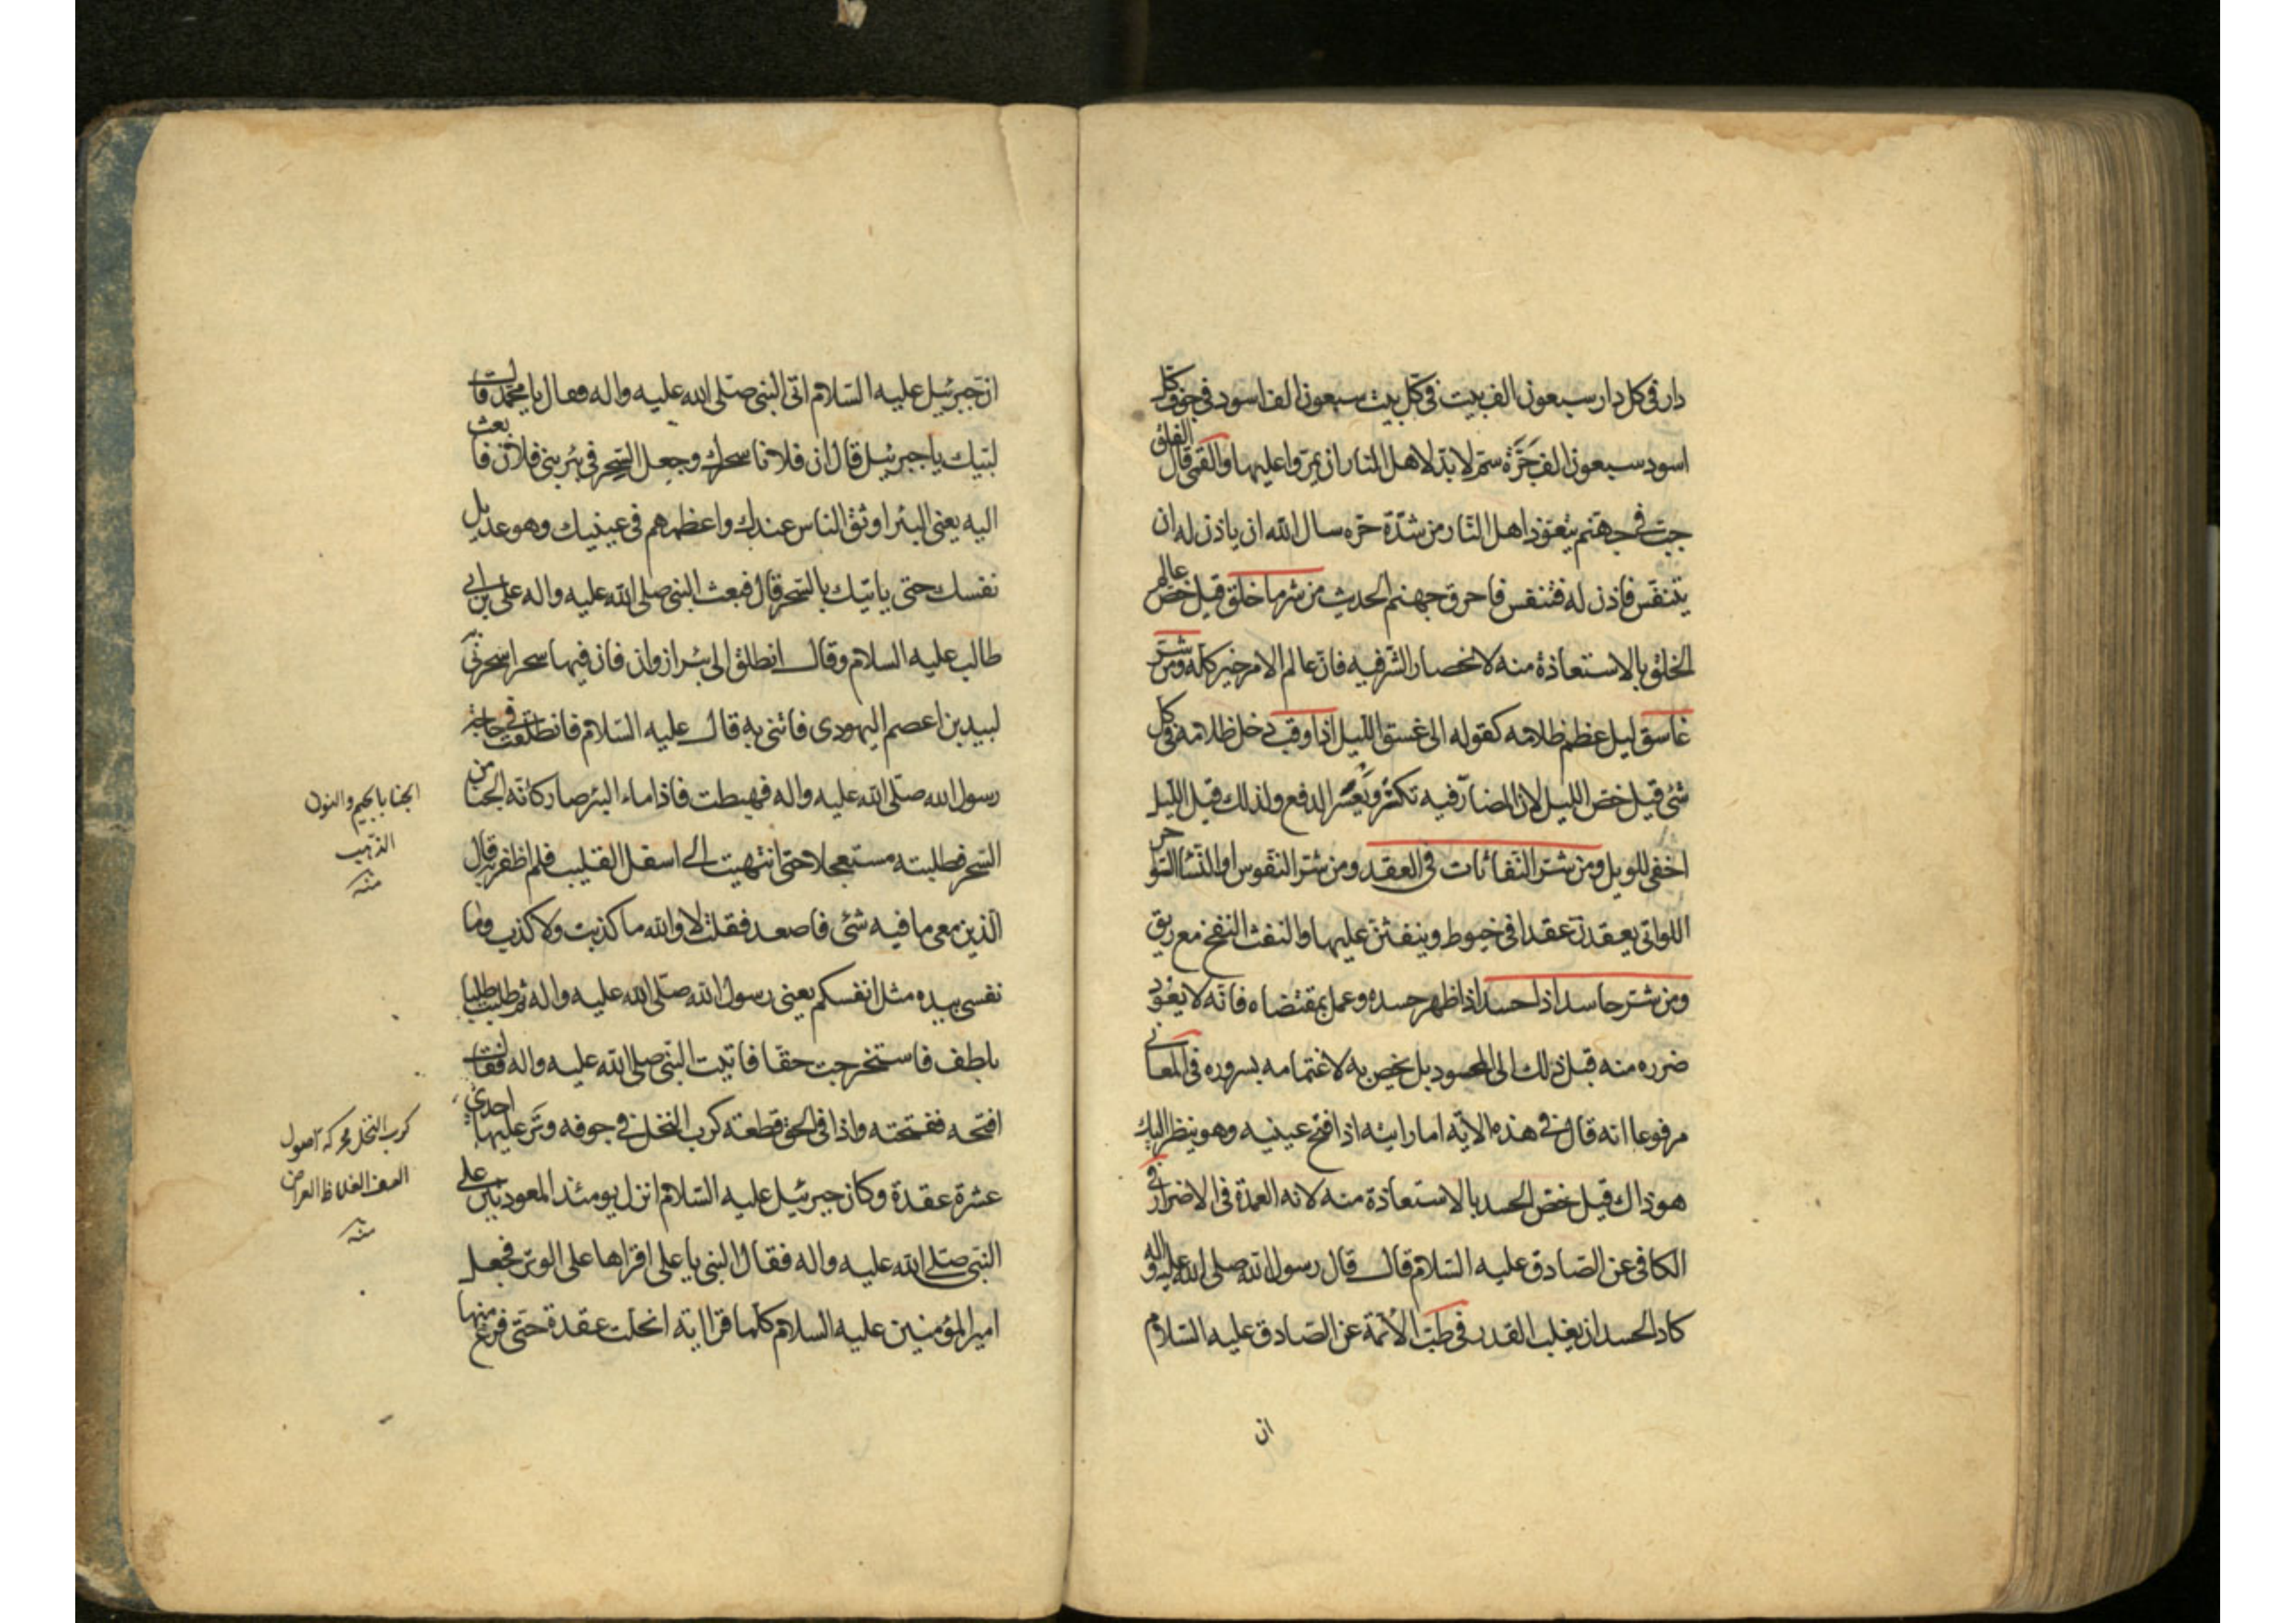 دار في كل دار سبعون الف بيت في كل بيت سبعون الف اسود في جوف كل
اسود سبعون الف جرّة سمّ لا بدّ لاهل النار ان يمرّوا عليها والقمي قال الفلق
جبّ في جهنم يتعوّذ اهل النّار من شدّة حرّه سال الله ان ياذن له ان
يتنفس فاذن له فتنفس فاحرق جهنم الحديث من شر ما خلق قيل خصّ عالم
الخلق بالاستعاذة منه لانحصار الشّر فيه فانّ عالم الامر خير كلّه ومن شرّ
غاسق ليل عظم ظلامه كقوله الى غسق الليل اذا وقب دخل ظلامه في كل
شئ قيل خصّ الليل لان المضارّ فيه تكثر ويَعسُر الدفع ولذلك قيل الليل
اخفى للويل ومن شرّ النّفاثات في العقد ومن شرّ النّفوس او النّسا السّواحر
اللواتي يعقدن عقدا في خيوط وينفثن عليها والنفث النفخ مع ريق
ومن شرّ حاسد اذا حسد اذا ظهر حسده وعمل بمقتضاه فانّه لا يعود
ضرره منه قبل ذلك الى المحسود بل يخص به لاغتمامه بسروره في المعاني
مرفوعا انه قال في هذه الاية اما رايته اذا فتح عينيه وهو ينظر اليك
هو ذاك قيل خصّ الحسد بالاستعاذة منه لانه العمدة في الاضرار في
الكافي عن الصّادق عليه السّلام قال قال رسول الله صلى الله عليه واله
كاد الحسد ان يغلب القدر في طبّ الأئمة عن الصّادق عليه السّلام
ان
انّ جبرئيل عليه السّلام اتى النبي صلّى الله عليه واله وقال يا محمّد قال
لبّيك يا جبرئيل قال ان فلانا سحرك وجعل السّحر في بئر بني فلان فابعث
اليه يعني البئر اوثق الناس عندك واعظمهم في عينيك وهو عديل
نفسك حتى ياتيك بالسّحر قال فبعث النبي صلى الله عليه واله علي بن ابي
طالب عليه السلام وقال انطلق الى بئر ازوان فان فيها سحرا سحرني به
لبيد بن اعصم اليهودي فاتني به قال عليه السّلام فانطلقت في حاجة
رسول الله صلّى الله عليه واله فهبطت فاذا ماء البئر صار كانّه الجنا من
السّحر فطلبته مستعجلا حتى انتهيت الى اسفل القليب فلم اظفر به قال
الّذين معي ما فيه شئ فاصعد فقلت لا والله ما كذبت ولا كذب وما
نفسي بيده مثل انفسكم يعني رسول الله صلّى الله عليه واله ثم طلبت طلبا
بلطف فاستخرجت حقّا فاتيت النّبي صلى الله عليه واله فقال
افتحه ففتحته واذا في الحق قطعة كرب النخل في جوفه وتَر عليها احدى
عشرة عقدة وكان جبرئيل عليه السّلام انزل يومئذ المعوذتين على
النّبي صلى الله عليه واله فقال النبي يا علي اقراها على الوتر فجعل
امير المؤمنين عليه السلام كلّما قرا اية انحلت عقدة حتّى فرغ منها
الجنا بالجيم والنون
الذهب
منه
كرب النخل محركة اصول
السعف الغلاظ العراض
منه